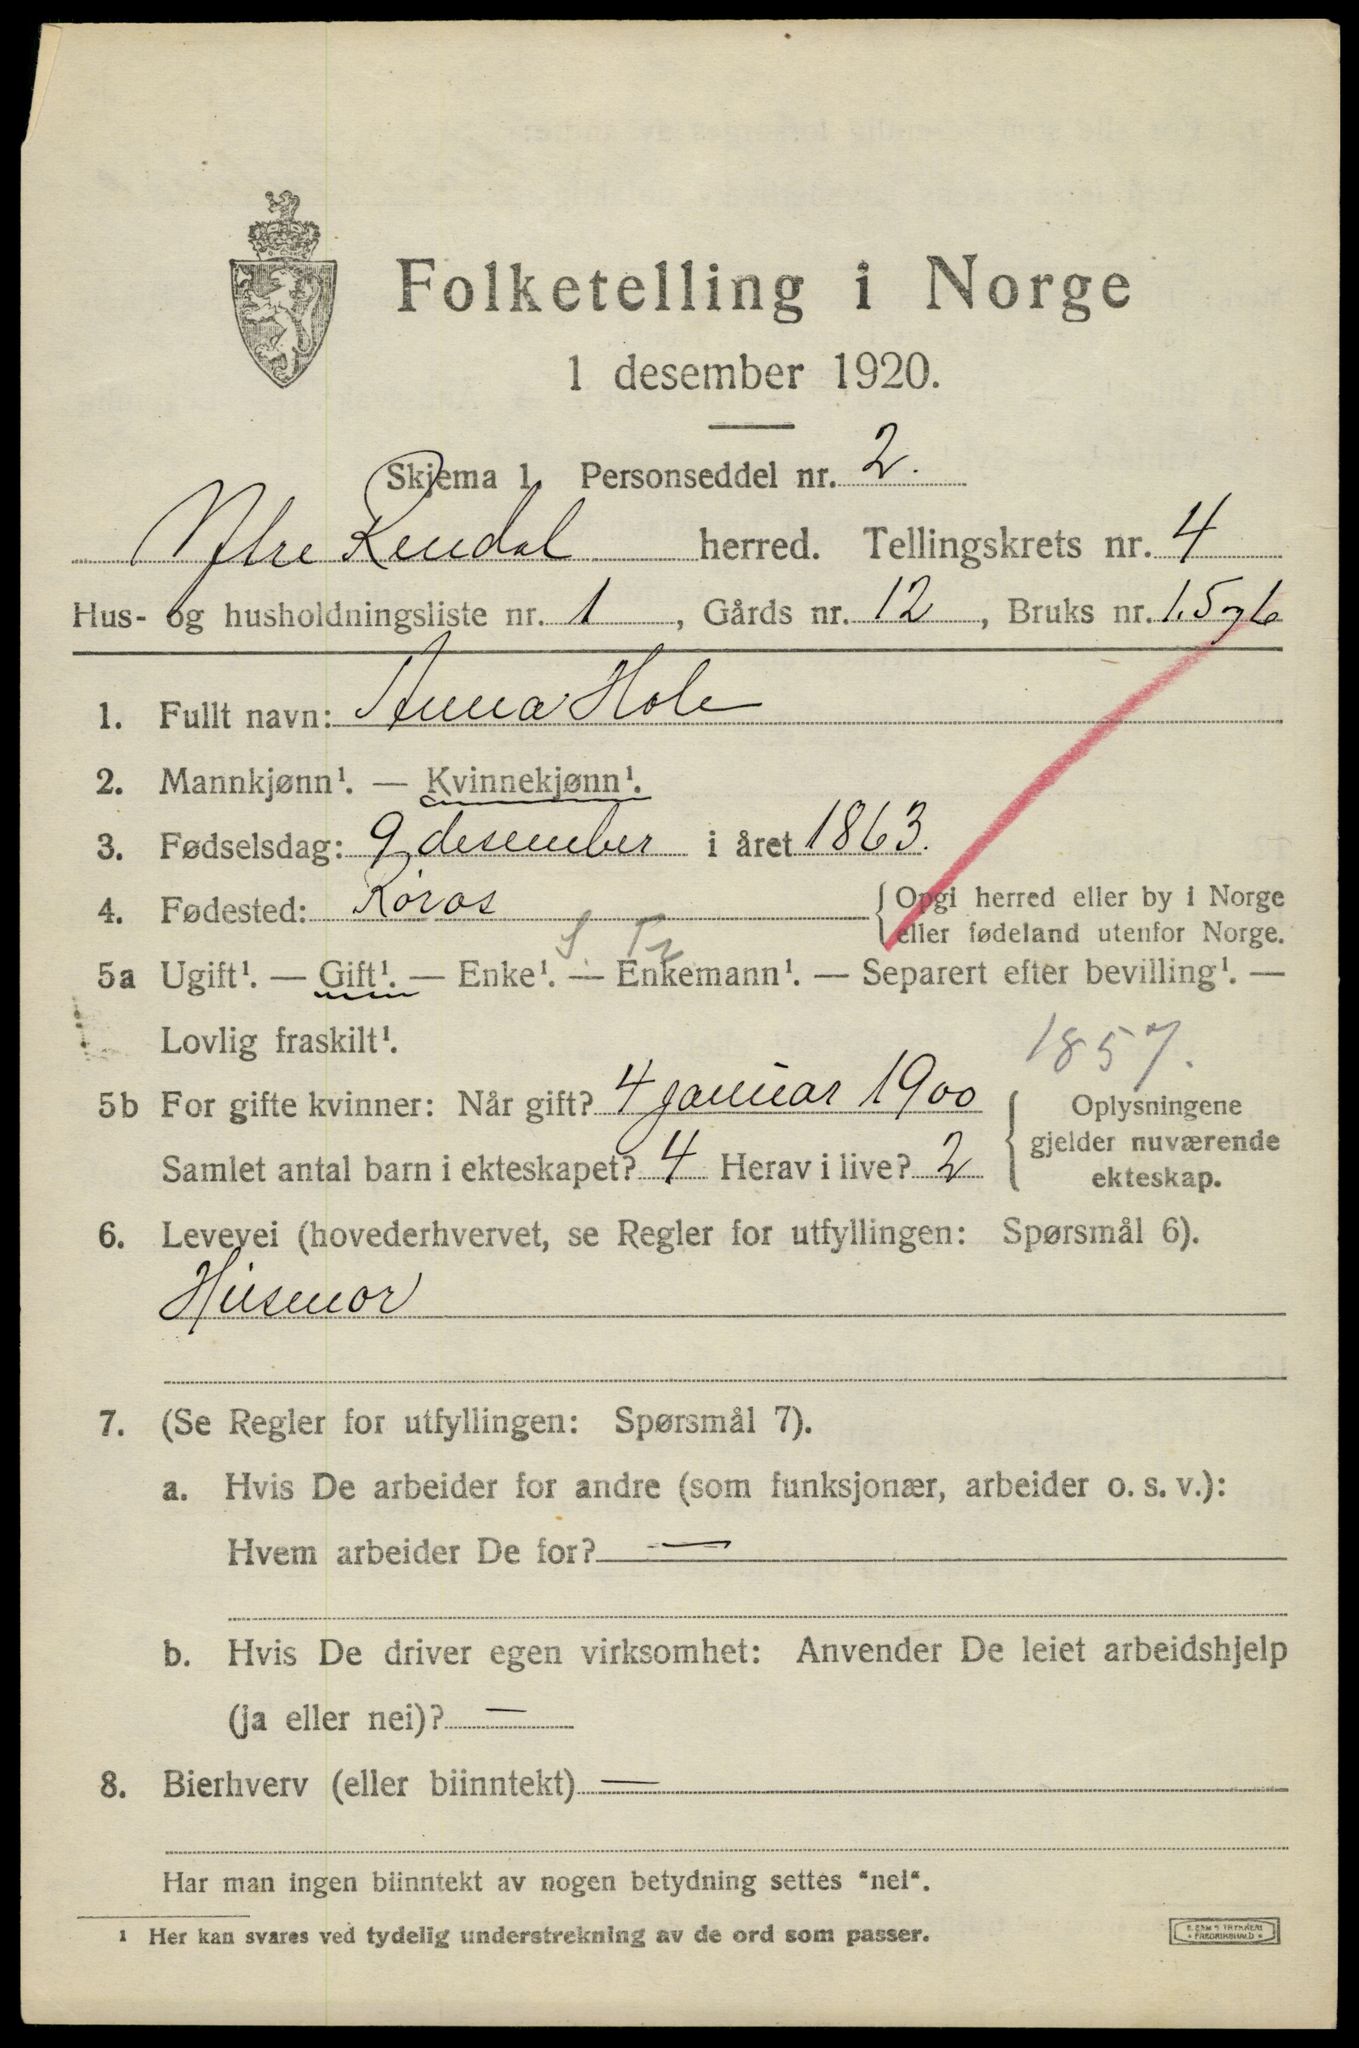 Folketelling i Norge
1 desember 1920.
Skjema 1. Personseddel nr. 2.
Ytre Rendal herred. Tellingskrets nr. 4
Hus- og husholdningsliste nr. 1, Gårds nr. 12, Bruks nr. 1.5 og 6
1. Fullt navn: Anna Hole
2. Mannkjønn¹. — Kvinnekjønn¹.
3. Fødselsdag: 9 desember i året 1863.
4. Fødested: Røros {Opgi herred eller by i Norge
eller fødeland utenfor Norge.
S. Tr
5a Ugift¹. — Gift¹. — Enke¹. — Enkemann¹. — Separert efter bevilling¹. —
Lovlig fraskilt¹.
1857.
5b For gifte kvinner: Når gift? 4 januar 1900 {Oplysningene
gjelder nuværende
Samlet antal barn i ekteskapet? 4 Herav i live? 2 ekteskap.
6. Levevei (hovederhvervet, se Regler for utfyllingen: Spørsmål 6).
Husmor
7. (Se Regler for utfyllingen: Spørsmål 7).
a. Hvis De arbeider for andre (som funksjonær, arbeider o. s. v.):
Hvem arbeider De for? —
b. Hvis De driver egen virksomhet: Anvender De leiet arbeidshjelp
(ja eller nei)? —
8. Bierhverv (eller biinntekt) —
Har man ingen biinntekt av nogen betydning settes "nei".
¹ Her kan svares ved tydelig understrekning av de ord som passer.